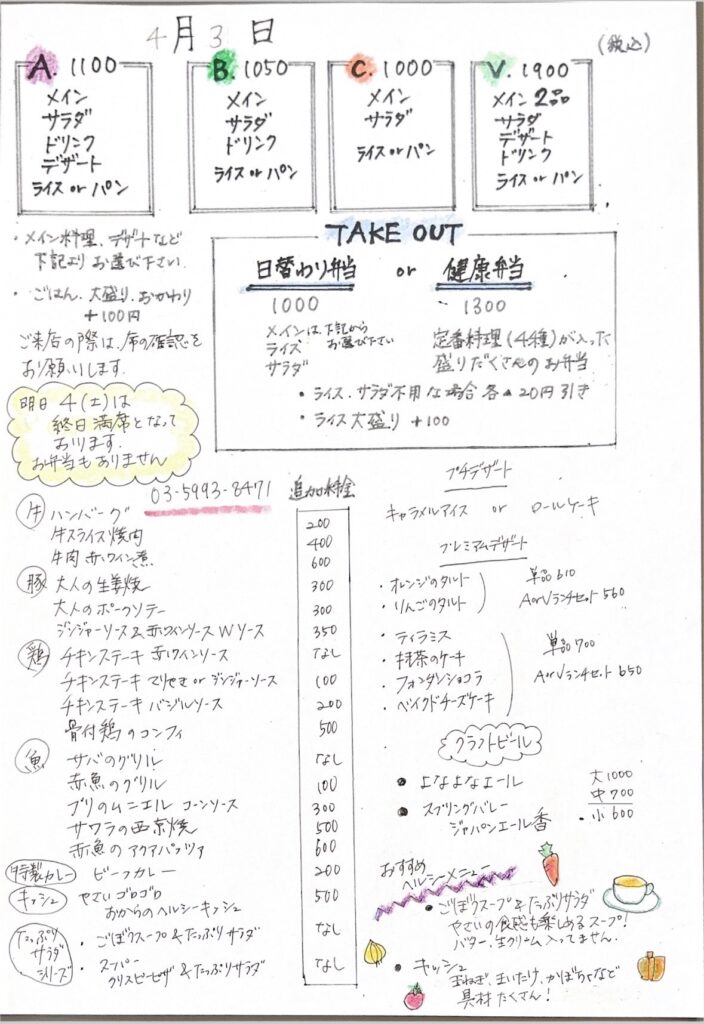 4月3日
(税込)
A. 1100
メイン
サラダ
ドリンク
デザート
ライス or パン
B. 1050
メイン
サラダ
ドリンク
ライス or パン
C. 1000
メイン
サラダ
ライス or パン
V. 1900
メイン 2品
サラダ
デザート
ドリンク
ライス or パン
・メイン料理、デザートなど
下記より お選び下さい.
・ごはん、大盛り、おかわり
+100円
ご来店の際は、席の確認を
お願いします.
明日 4(土)は
終日 満席となって
おります.
お弁当もありません
TAKE OUT
日替わり弁当 or 健康弁当
1000
メインは、下記から
お選び下さい
ライス
サラダ
1300
定番料理(4種)が入った
盛りだくさんのお弁当
・ライス、サラダ不用な場合 各▲20円引き
・ライス大盛り +100
03-5993-8471
追加料金
牛 ハンバーグ 200
牛スライス焼肉 400
牛肉 赤ワイン煮 600
豚 大人の生姜焼 300
大人のポークソテー 300
ジンジャーソース&赤ワインソース Wソース 350
鶏 チキンステーキ 赤ワインソース なし
チキンステーキ てりやき or ジンジャーソース 100
チキンステーキ バジルソース 200
骨付鶏のコンフィ 500
魚 サバのグリル なし
赤魚のグリル 100
ブリのムニエル コーンソース 300
サワラの西京焼 500
赤魚の アクアパッツァ 600
特製カレー ビーフカレー 200
キッシュ やさいゴロゴロ
おからのヘルシーキッシュ 500
たっぷりサラダシリーズ
・ごぼうスープ&たっぷりサラダ なし
・スーパークリスピーピザ&たっぷりサラダ なし
プチデザート
キャラメルアイス or ロールケーキ
プレミアムデザート
・オレンジのタルト
・りんごのタルト
単品 610
AorVランチセット 560
・ティラミス
・抹茶のケーキ
・フォンダンショコラ
・ベイクドチーズケーキ
単品 700
AorVランチセット 650
クラフトビール
● よなよなエール
● スプリングバレー
ジャパンエール香
大1000
中700
小600
おすすめ
ヘルシーメニュー
・ごぼうスープ&たっぷりサラダ
やさいの食感も楽しめるスープ!
バター、生クリーム入ってません.
・キッシュ
玉ねぎ、まいたけ、かぼちゃなど
具材たくさん!